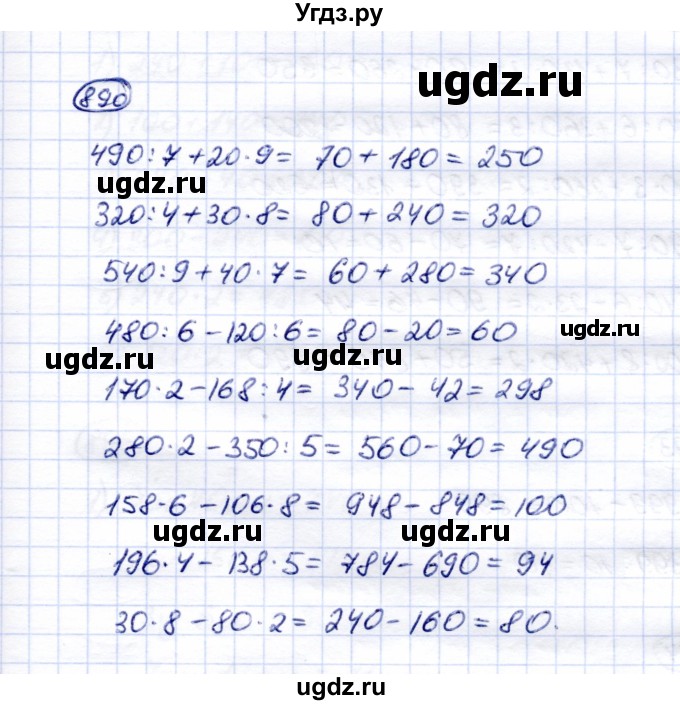 Угдз.ру
ugdz.ru
890
490:7+20·9= 70+180=250
ugdz.ru
320:4+30·8= 80+240=320
540:9+40·7= 60+280=340
480:6-120:6= 80-20=60
ugdz.ru
ugdz.ru
ugdz.ru
170·2-168:4= 340-42=298
280·2-350:5= 560-70=490
158·6-106·8= 948-848=100
ugdz.ru
ugdz.ru
196·4-138·5= 784-690=94
30·8-80·2= 240-160=80.
ugdz.ru